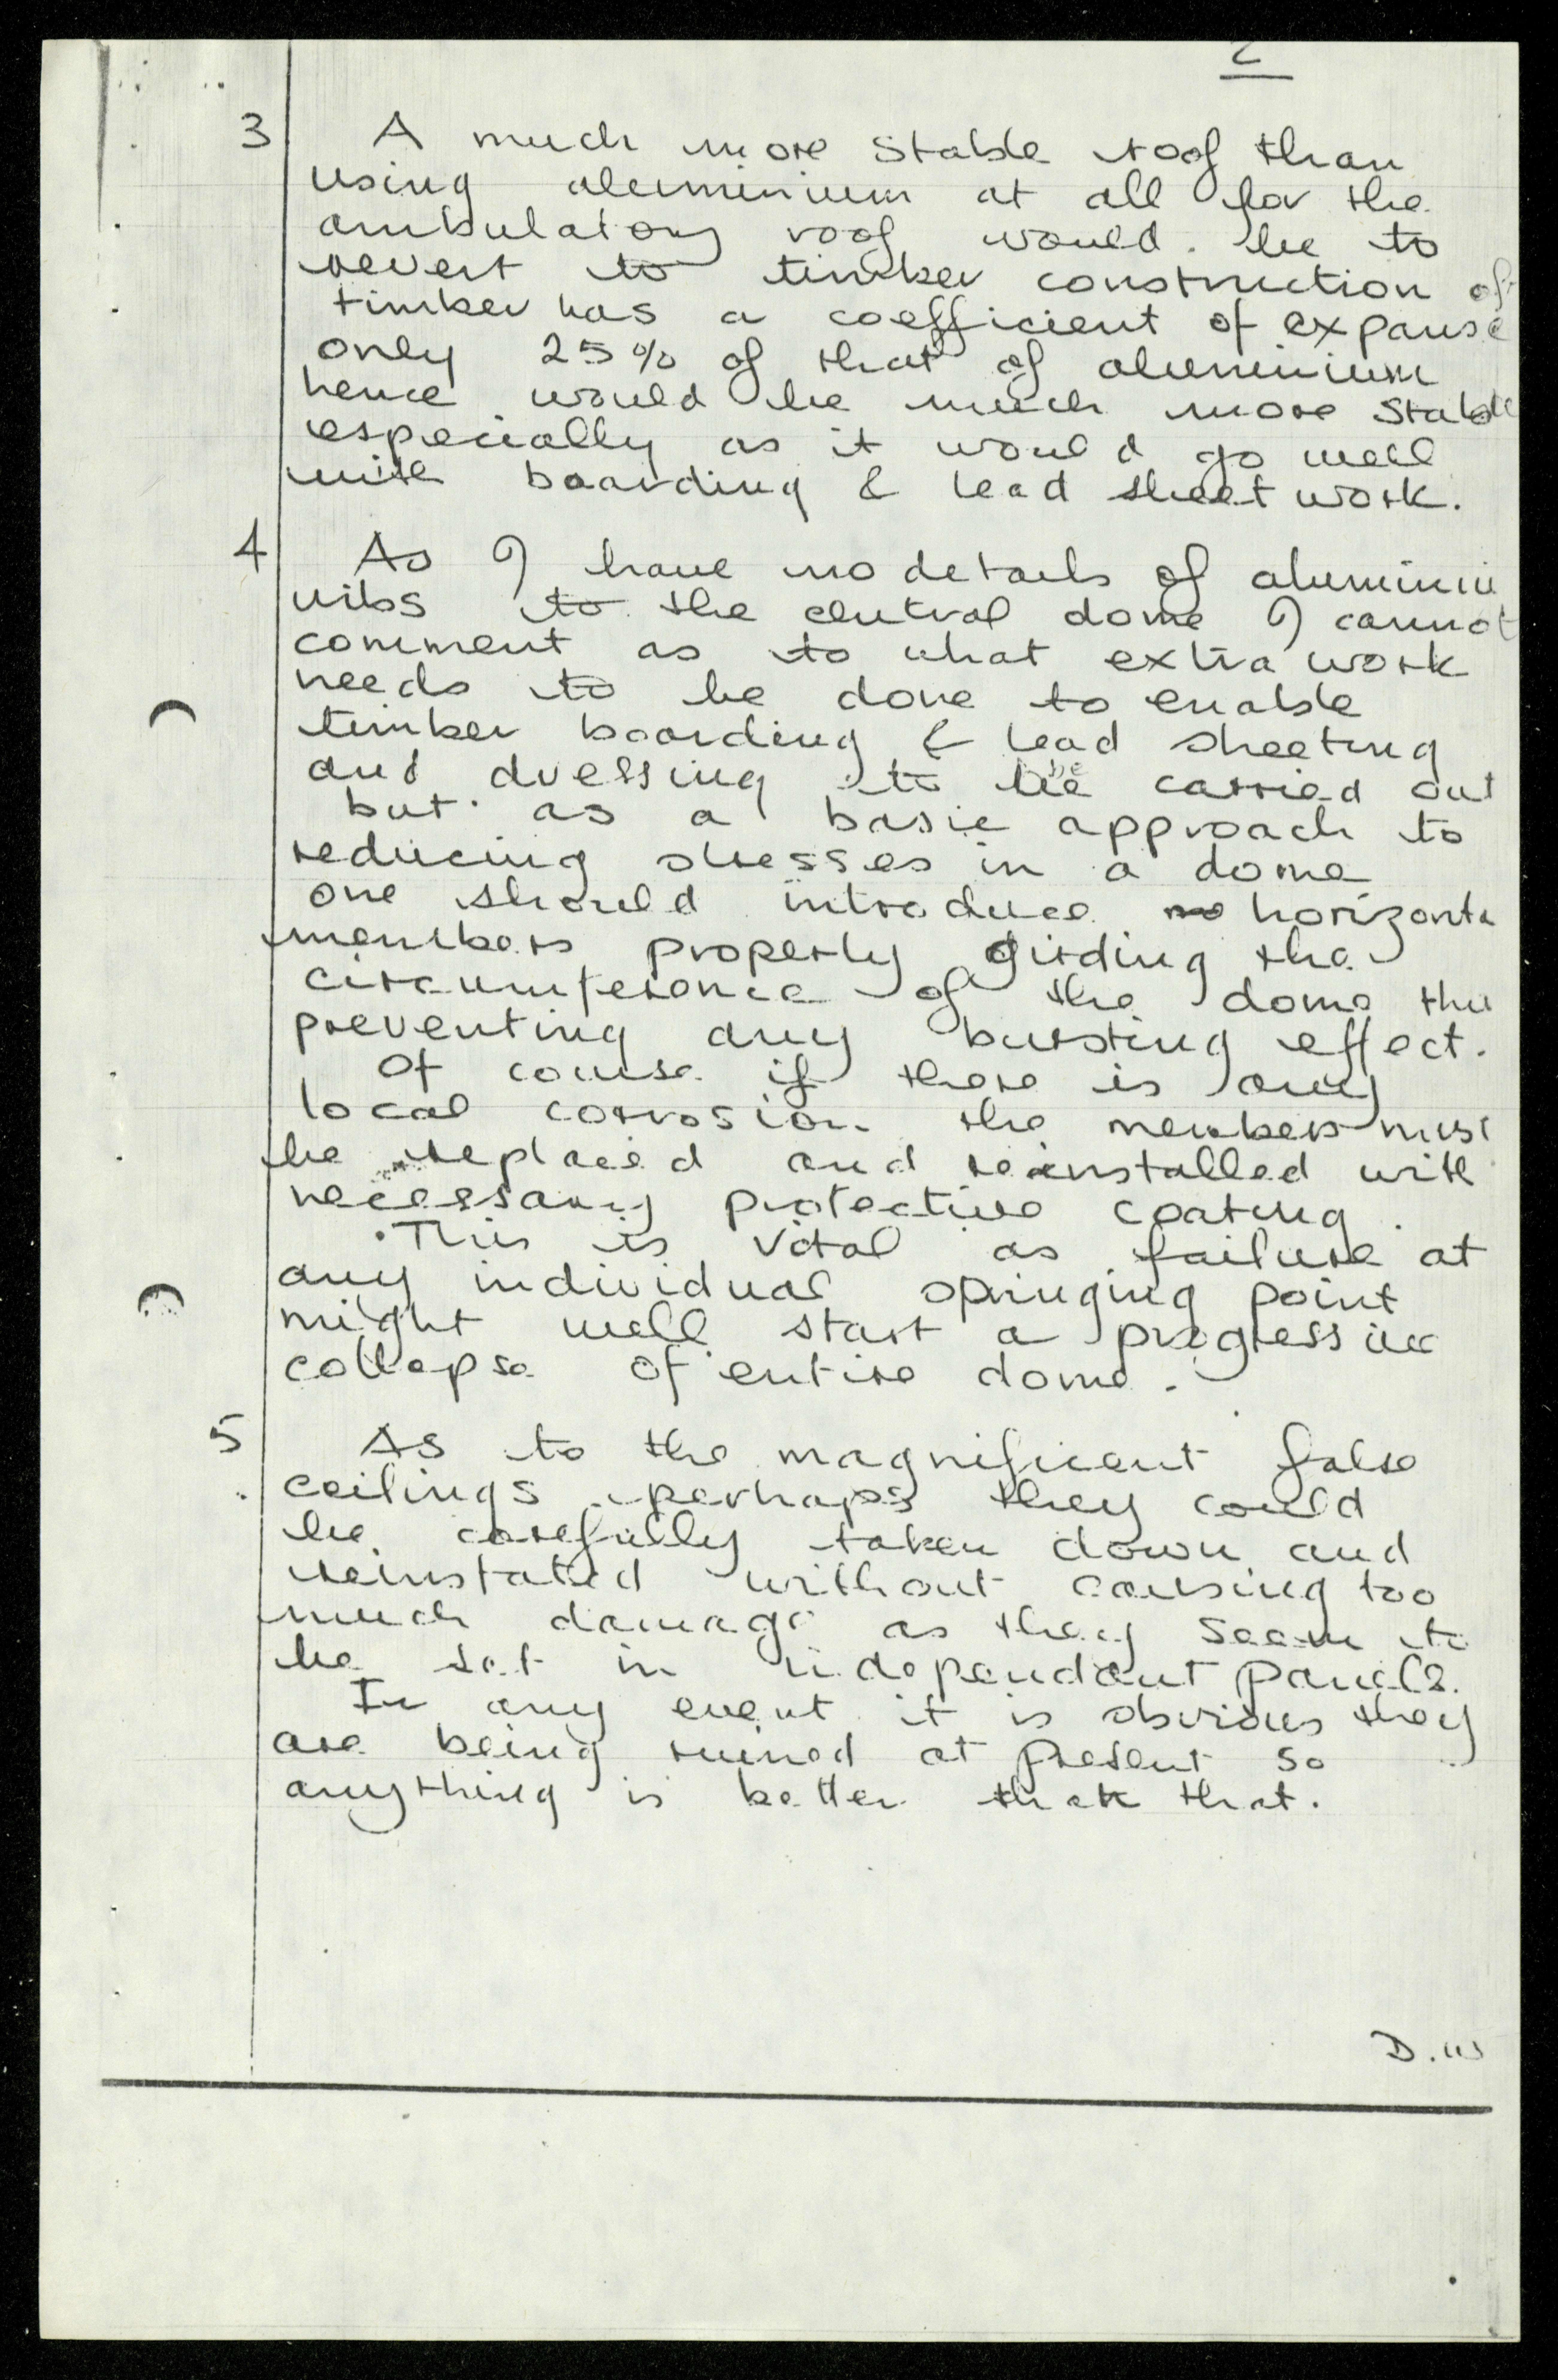 2
3 A much more stable roof than
using aluminium at all for the
ambulatory roof would be to
revert to timber construction of
timber has a coefficient of expanse
only 25% of that of aluminium
hence would be much more stable
especially as it would go well
with boarding & lead sheet work.
4 As I have no details of aluminiu
ribs to the central dome I cannot
comment as to what extra work
needs to be done to enable
timber boarding & lead sheeting
and dressing to be carried out
but as a basic approach to
reducing stresses in a dome
one should introduce horizonta
members properly girding the
circumference of the dome thu
preventing any bursting effect.
Of course if there is any
local corrosion the members must
be replaced and reinstalled with
necessary protective coating.
This is vital as failure at
any individual springing point
might well start a progressive
collapse of entire dome.
5 As to the magnificent false
ceilings perhaps they could
be carefully taken down and
reinstated without causing too
much damage as they seem to
be set in independant panels.
In any event it is obvious they
are being ruined at present so
anything is better than that.